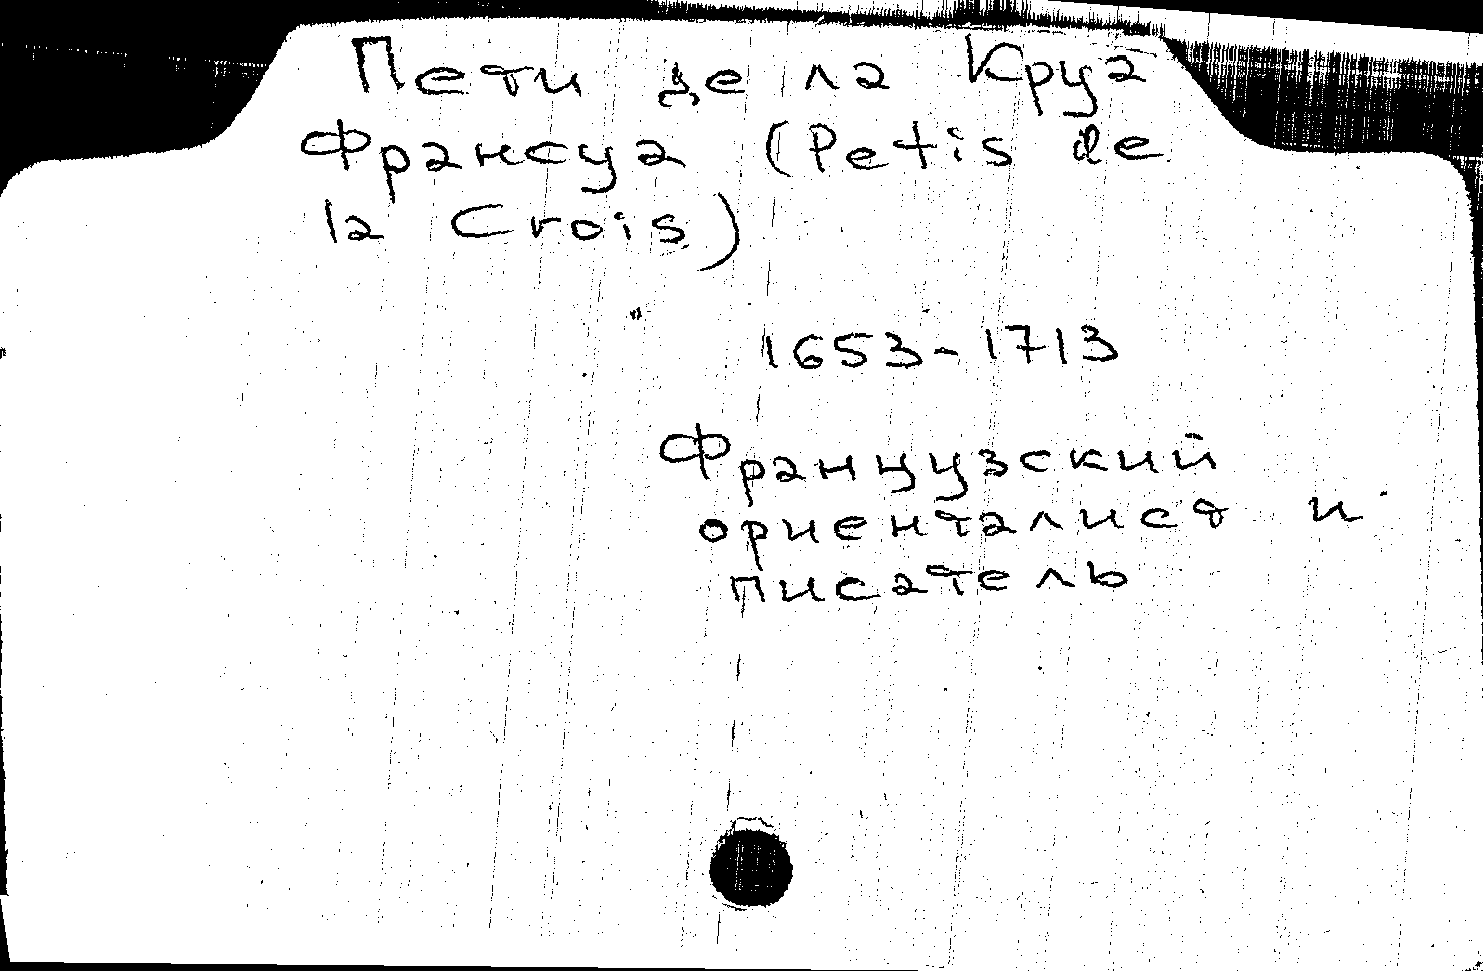 Пети де ла Круа
Франсуа (Petis de
la Crois)
1653-1713
Французский
ориенталист и
писатель